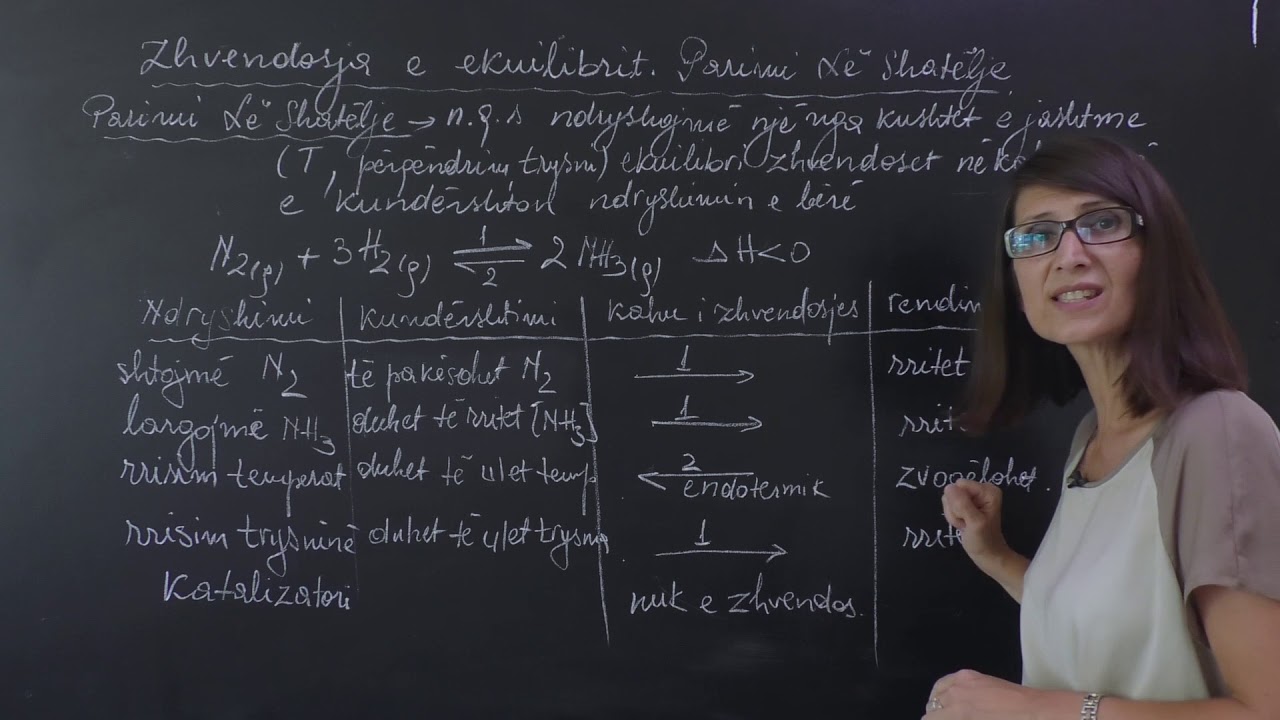 Zhvendosja e ekuilibrit. Parimi Lë Shatëlje.
Parimi Lë Shatëlje → n.q.s ndryshojmë një nga kushtet e jashtme
(T, përqëndrim, trysni) ekuilibri zhvendoset në
e kundërshton ndryshimin e bërë
N2(g) + 3H2(g) 1 ⇌ 2 2NH3(g) ΔH<0
Ndryshimi kundërshtimi kahu i zhvendosjes rendim
shtojmë N2 të pakësohet N2 1 → rritet
largojmë NH3 duhet të rritet [NH3] 1 → rrit
rrisim temperat duhet të ulet temp 2 ← endotermik zvogëlohet.
rrisim trysninë duhet të ulet trysnia 1 → rrite
Katalizatori nuk e zhvendos.